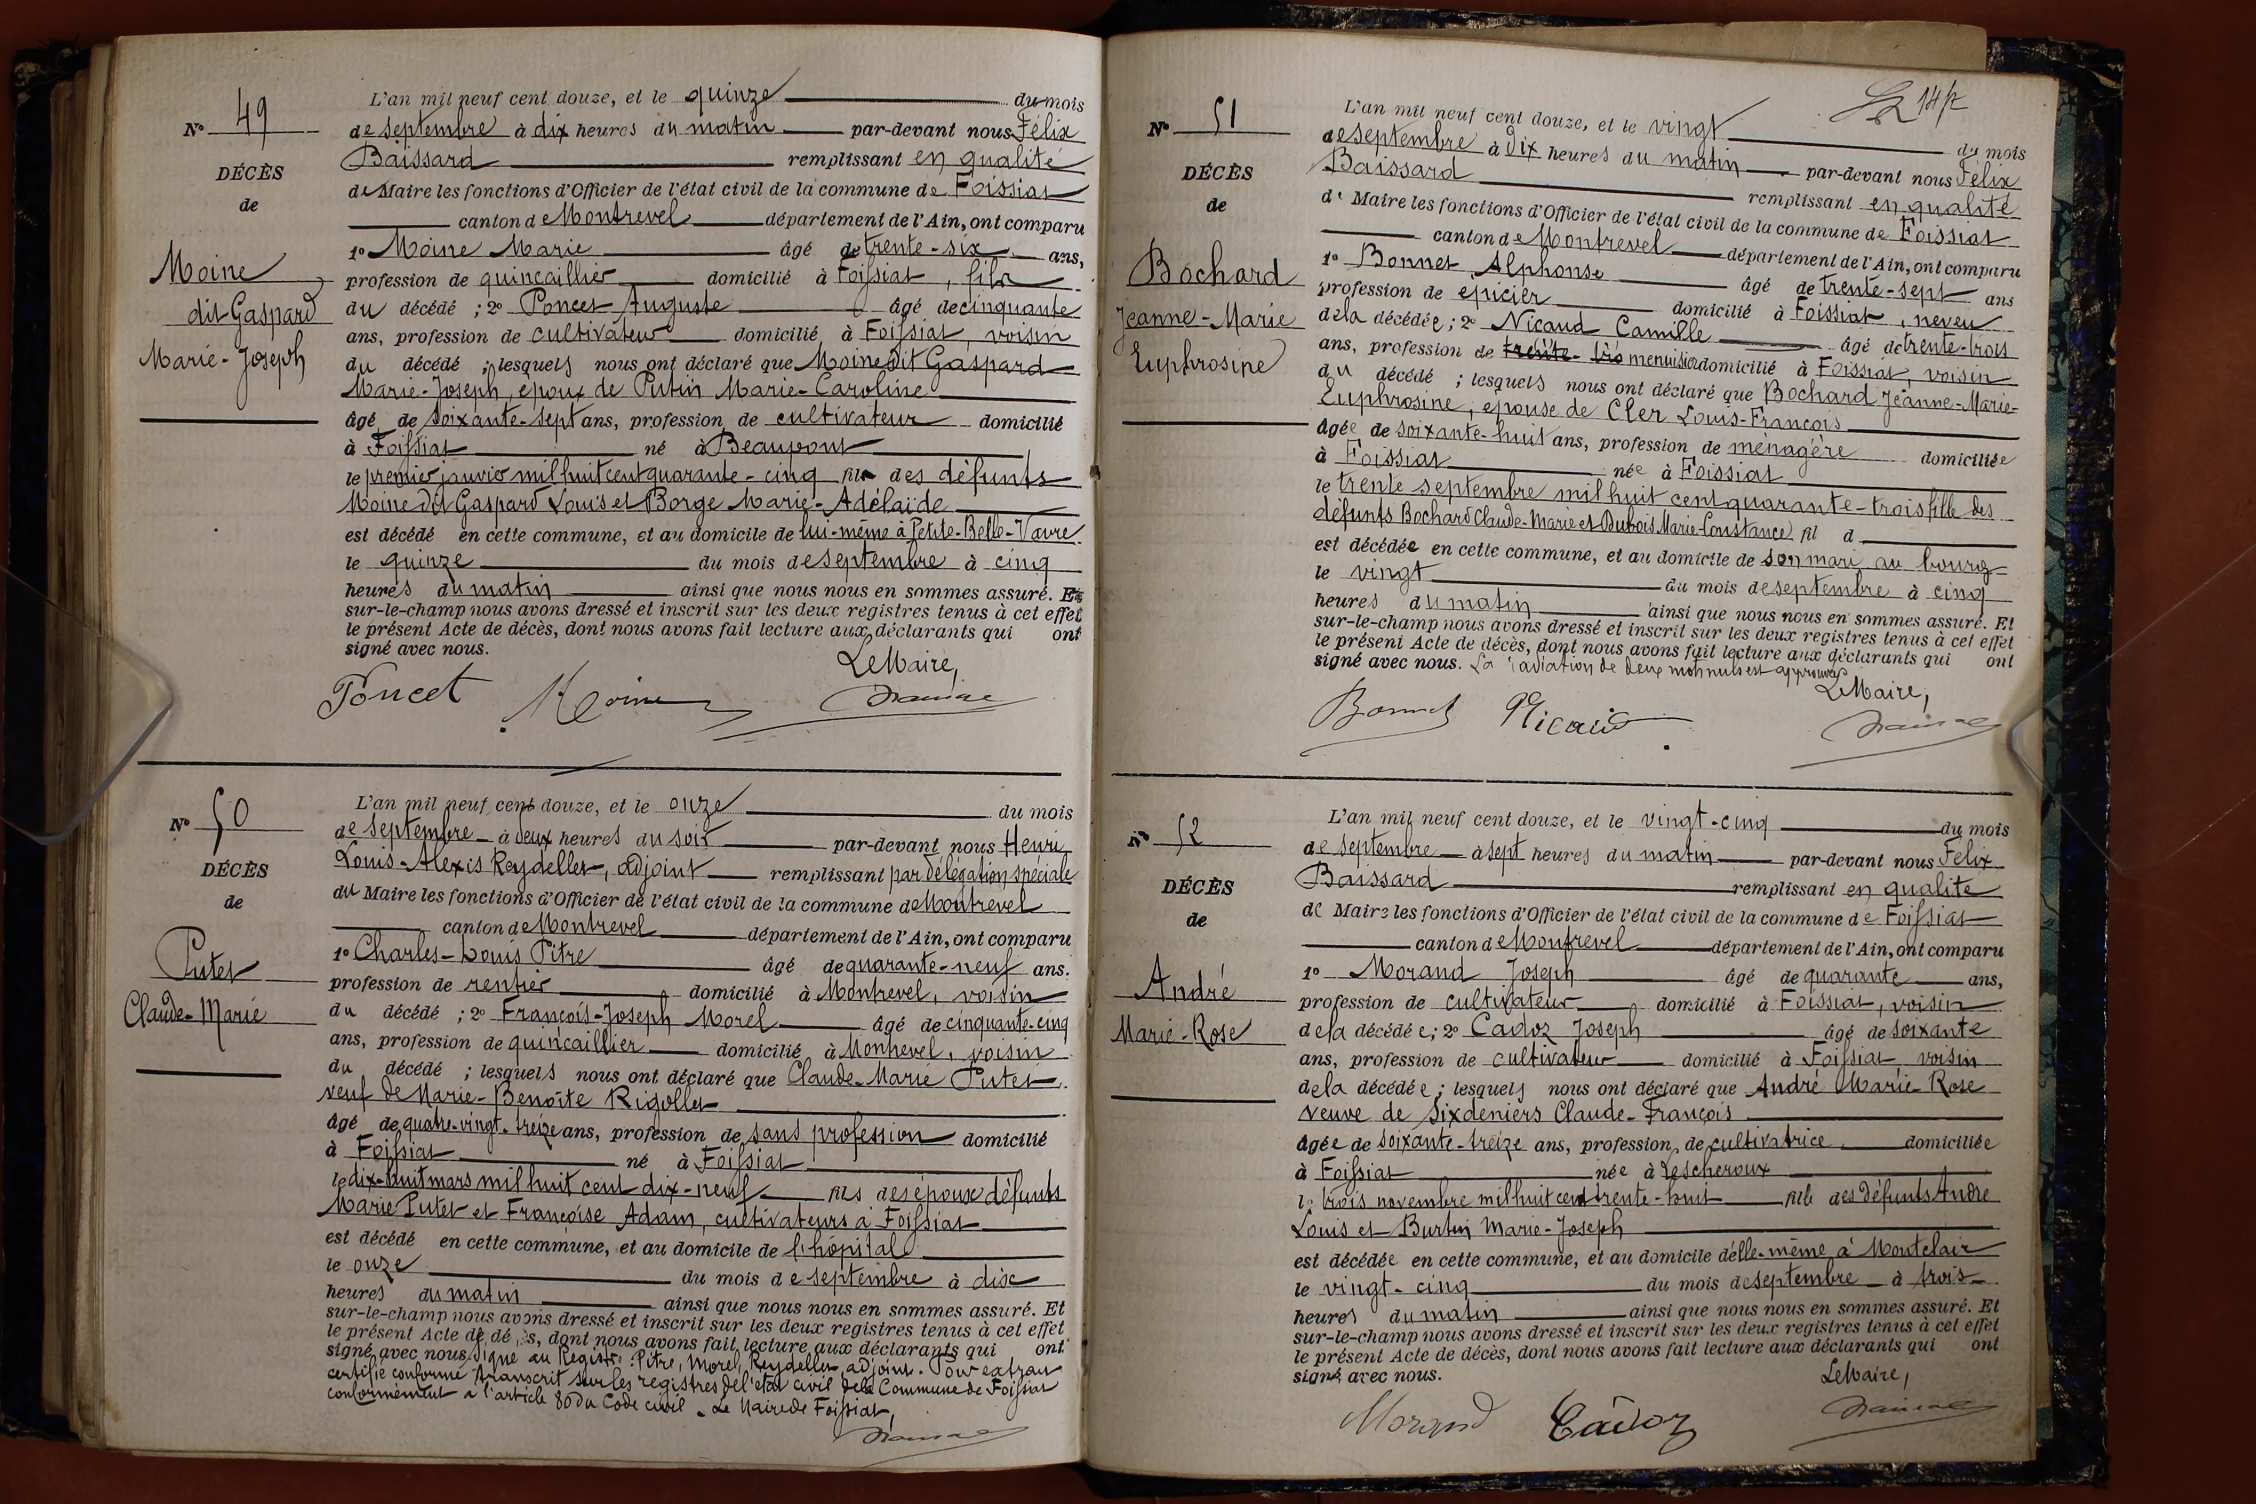 49
L'an mil neuf cent douze, et le quinze du mois
N° de septembre à dix heures du matin par-devant nous Félix
Baissard remplissant en qualité
DÉCÈS de Maire les fonctions d'Officier de l'état civil de la commune de Foissiat
de canton de Montrevel département de l'Ain, ont comparu
1° Moine Marie âgé de trente-six ans,
Moine profession de quincaillier domicilié à Foissiat, fils
dit Gaspard du décédé ; 2° Poncet Auguste âgé de cinquante
ans, profession de cultivateur domicilié à Foissiat, voisin
Marie-Joseph du décédé ; lesquels nous ont déclaré que Moine dit Gaspard
Marie-Joseph, époux de Putin Marie-Caroline
âgé de soixante-sept ans, profession de cultivateur domicilié
à Foissiat né à Beaupont
le premier janvier mil huit cent quarante-cinq fils des défunts
Moine dit Gaspard Louis et Borge Marie-Adélaïde
est décédé en cette commune, et au domicile de lui-même à Petite-Belle-Vavre
le quinze du mois de septembre à cinq
heures du matin ainsi que nous nous en sommes assuré. Et
sur-le-champ nous avons dressé et inscrit sur les deux registres tenus à cet effet
le présent Acte de décès, dont nous avons fait lecture aux déclarants qui ont
signé avec nous.
Le Maire,
Poncet Moine
50
L'an mil neuf cent douze, et le onze du mois
N° de septembre à deux heures du soir par-devant nous Henri
Louis-Alexis Reydellet, adjoint remplissant par délégation spéciale
DÉCÈS du Maire les fonctions d'Officier de l'état civil de la commune de Montrevel
de canton de Montrevel département de l'Ain, ont comparu
1° Charles-Louis Pitre âgé de quarante-neuf ans.
Putet profession de rentier domicilié à Montrevel, voisin
Claude-Marie du décédé ; 2° François-Joseph Morel âgé de cinquante-cinq
ans, profession de quincaillier domicilié à Montrevel, voisin
du décédé ; lesquels nous ont déclaré que Claude-Marie Putet
veuf de Marie-Benoîte Rigollet
âgé de quatre-vingt-treize ans, profession de sans profession domicilié
à Foissiat né à Foissiat
le dix-huit mars mil huit cent dix-neuf fils des époux défunts
Marie Putet et Françoise Adam, cultivateurs à Foissiat
est décédé en cette commune, et au domicile de l'hôpital
le onze du mois de septembre à dix
heures du matin ainsi que nous nous en sommes assuré. Et
sur-le-champ nous avons dressé et inscrit sur les deux registres tenus à cet effet
le présent Acte de décès, dont nous avons fait lecture aux déclarants qui ont
signé avec nous. Signé au Registre : Pitre, Morel, Reydellet, adjoint. Pour extrait
certifié conforme transcrit sur les registres de l'état civil de la Commune de Foissiat
conformément à l'article 80 du Code civil. Le Maire de Foissiat,
51
L'an mil neuf cent douze, et le vingt du mois
N° de septembre à dix heures du matin par-devant nous Félix
Baissard remplissant en qualité
DÉCÈS de Maire les fonctions d'Officier de l'état civil de la commune de Foissiat
de canton de Montrevel département de l'Ain, ont comparu
1° Bonnet Alphonse âgé de trente-sept ans
Bochard profession de épicier domicilié à Foissiat, neveu
Jeanne-Marie de la décédée ; 2° Nicaud Camille âgé de trente-trois
ans, profession de trente-tro menuisier domicilié à Foissiat, voisin
Euphrosine du décédé ; lesquels nous ont déclaré que Bochard Jeanne-Marie-
Euphrosine, épouse de Cler Louis-François
âgée de soixante-huit ans, profession de ménagère domiciliée
à Foissiat née à Foissiat
le trente septembre mil huit cent quarante-trois fille des
défunts Bochard Claude-Marie et Dubois Marie-Constance fil d
est décédée en cette commune, et au domicile de son mari au bourg
le vingt du mois de septembre à cinq
heures du matin ainsi que nous nous en sommes assuré. Et
sur-le-champ nous avons dressé et inscrit sur les deux registres tenus à cet effet
le présent Acte de décès, dont nous avons fait lecture aux déclarants qui ont
signé avec nous. La radiation de deux mots nuls est approuvée
Le Maire,
Bonnet Nicaud
52
L'an mil neuf cent douze, et le vingt-cinq du mois
N° de septembre à sept heures du matin par-devant nous Félix
Baissard remplissant en qualité
DÉCÈS de Maire les fonctions d'Officier de l'état civil de la commune de Foissiat
de canton de Montrevel département de l'Ain, ont comparu
André 1° Morand Joseph âgé de quarante ans,
profession de cultivateur domicilié à Foissiat, voisin
Marie-Rose de la décédée ; 2° Cadoz Joseph âgé de soixante
ans, profession de cultivateur domicilié à Foissiat, voisin
de la décédée ; lesquels nous ont déclaré que André Marie-Rose
veuve de Sixdeniers Claude-François
âgée de soixante-treize ans, profession de cultivatrice domiciliée
à Foissiat née à Lescheroux
le trois novembre mil huit cent trente-huit fille des défunts André
Louis et Burtin Marie-Joseph
est décédée en cette commune, et au domicile d'elle-même à Montclair
le vingt-cinq du mois de septembre à trois
heures du matin ainsi que nous nous en sommes assuré. Et
sur-le-champ nous avons dressé et inscrit sur les deux registres tenus à cet effet
le présent Acte de décès, dont nous avons fait lecture aux déclarants qui ont
signé avec nous.
Le Maire,
Morand Cadoz